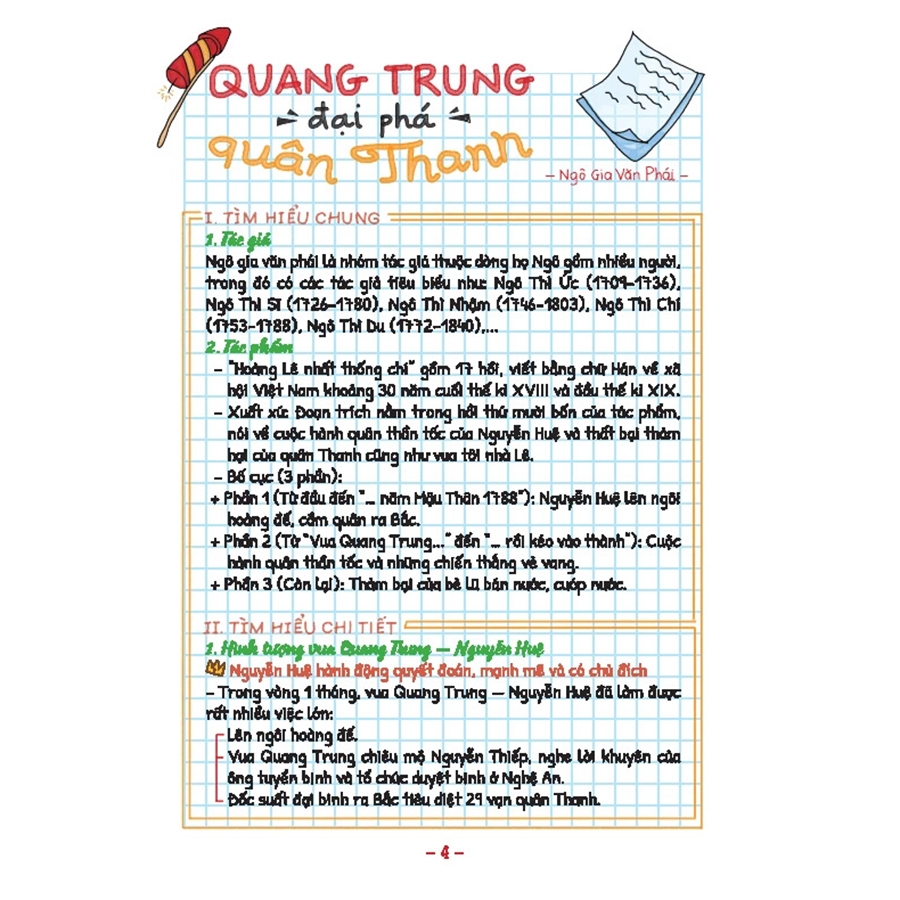 QUANG TRUNG
đại phá
quân Thanh
– Ngô Gia Văn Phái –
I. TÌM HIỂU CHUNG
1. Tác giả
Ngô gia văn phái là nhóm tác giả thuộc dòng họ Ngô gồm nhiều người,
trong đó có các tác giả tiêu biểu như: Ngô Thì Ức (1709–1736),
Ngô Thì Sĩ (1726–1780), Ngô Thì Nhậm (1746–1803), Ngô Thì Chí
(1753–1788), Ngô Thì Du (1772–1840),...
2. Tác phẩm
– "Hoàng Lê nhất thống chí" gồm 17 hồi, viết bằng chữ Hán về xã
hội Việt Nam khoảng 30 năm cuối thế kỉ XVIII và đầu thế kỉ XIX.
– Xuất xứ: Đoạn trích nằm trong hồi thứ mười bốn của tác phẩm,
nói về cuộc hành quân thần tốc của Nguyễn Huệ và thất bại thảm
hại của quân Thanh cũng như vua tôi nhà Lê.
– Bố cục (3 phần):
+ Phần 1 (Từ đầu đến "... năm Mậu Thân 1788"): Nguyễn Huệ lên ngôi
hoàng đế, cầm quân ra Bắc.
+ Phần 2 (Từ "Vua Quang Trung..." đến "... rồi kéo vào thành"): Cuộc
hành quân thần tốc và những chiến thắng vẻ vang.
+ Phần 3 (Còn lại): Thảm bại của bè lũ bán nước, cướp nước.
II. TÌM HIỂU CHI TIẾT
1. Hình tượng vua Quang Trung – Nguyễn Huệ
Nguyễn Huệ hành động quyết đoán, mạnh mẽ và có chủ đích
– Trong vòng 1 tháng, vua Quang Trung – Nguyễn Huệ đã làm được
rất nhiều việc lớn:
Lên ngôi hoàng đế.
Vua Quang Trung chiêu mộ Nguyễn Thiếp, nghe lời khuyên của
ông tuyển binh và tổ chức duyệt binh ở Nghệ An.
Đốc suất đại binh ra Bắc tiêu diệt 29 vạn quân Thanh.
– 4 –